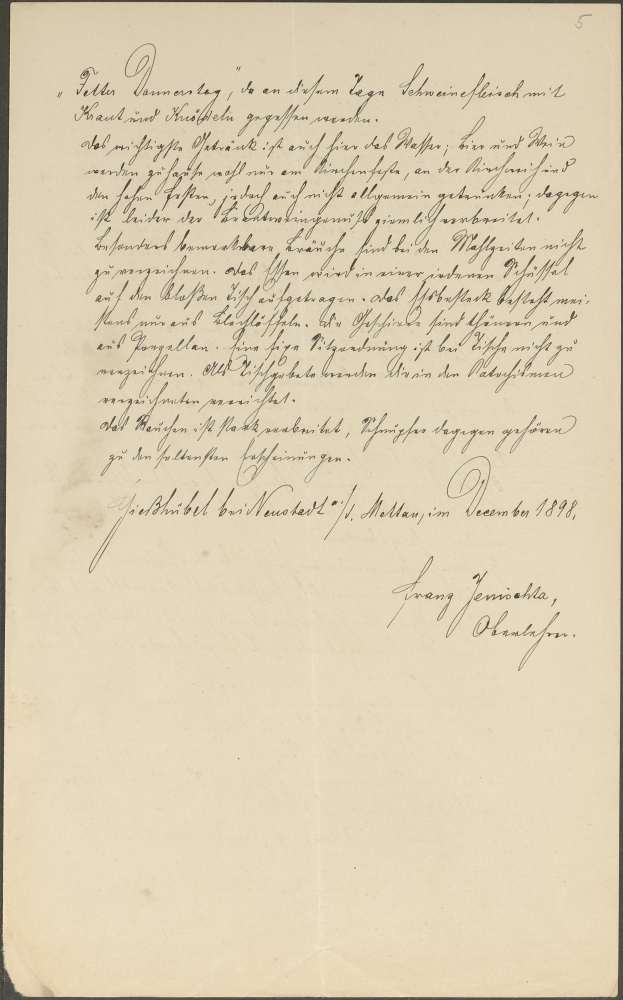 5
„Fetter Donnerstag", da an diesem Tage Schweinefleisch mit
Kraut und Knödeln gegessen werden.
Das wichtigste Getränk ist auch hier das Wasser; Bier und Wein
werden zuhause wohl nur am Kirchenfeste, an der Kirchweih und
den hohen Festen, jedoch auch nicht allgemein getrunken; dagegen
ist leider der Brantweingenuß ziemlich verbreitet.
Besonders bemerkbare Bräuche sind bei den Mahlzeiten nicht
zu verzeichnen. Das Essen wird in einer irdenen Schüssel
auf den bloßen Tisch aufgetragen. Das Essbesteck besteht mei-
stens nur aus Blechlöffeln. Die Geschirre sind thönern und
aus Porzellan. Eine fixe Sitzordnung ist bei Tische nicht zu
verzeichnen. Als Tischgebete werden die in den Katechismen
verzeichneten verrichtet.
Das Rauchen ist stark verbreitet, Schnupfer dagegen gehören
zu den seltensten Erscheinungen.
Gießhübel bei Neustadt a./d. Mettau, im December 1898.
Franz Jenischta,
Oberlehrer.